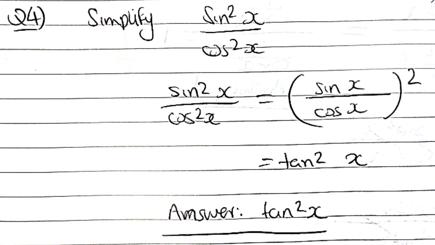 Q4) Simplify sin²x/cos²x
sin²x/cos²x = (sin x/cos x)²
= tan² x
Answer: tan²x